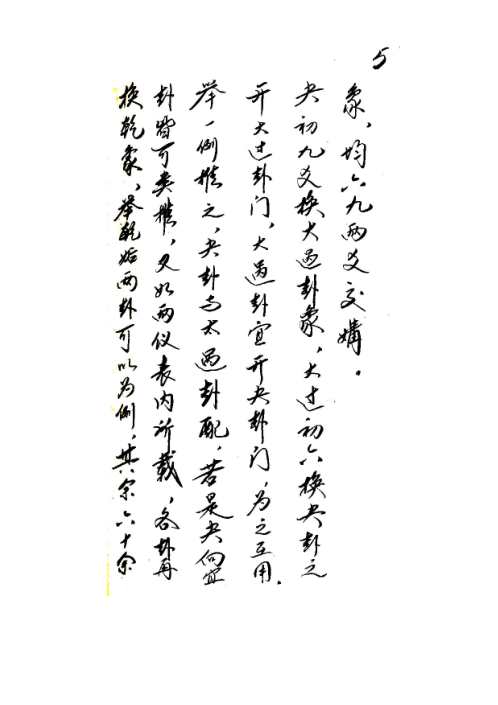 5
换乾象，举乾姤两卦可以为例，其余六十余
卦皆可类推，又如两仪表内所载，各卦再
举一例推之，夬卦与太過卦配，若是夬向宜
开大过卦门，大過卦宜开夬卦门，为之互用．
夬初九爻换大過卦象，大过初六换夬卦之
象，均六九两爻交媾。